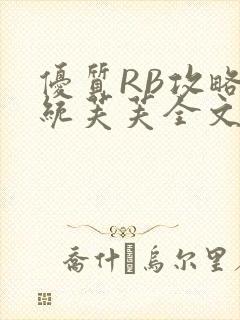 優質RB攻略
統芙芙全文
喬什 烏尔里